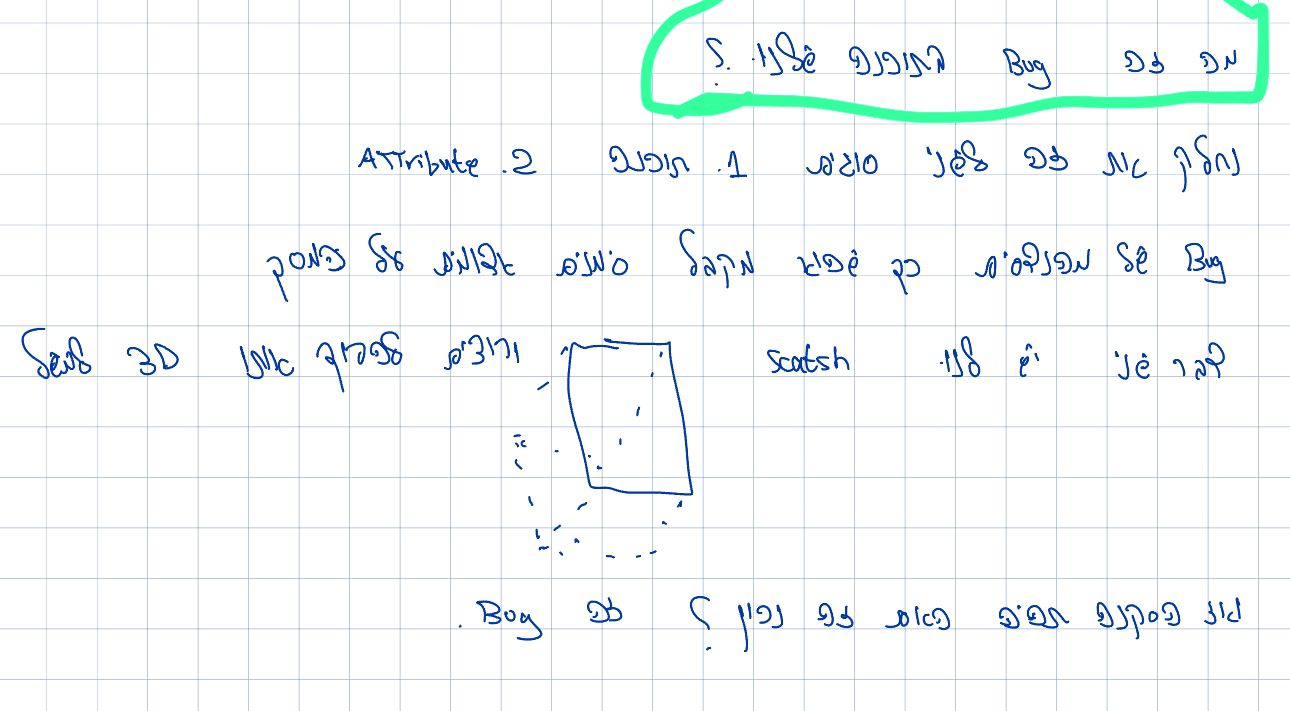 מה זה Bug בתוכנה שלנו ?
נחלק את זה לשני סוגים 1. תוכנה 2. Attribute
Bug של מהנדסים כך שהוא מקבל סימנים אדומים על המסך
דבר שני יש לנו scatsh ורוצים להפוך אותו 3D למשל
אז הסקנה תהיה האם זה נכון ? זה Bug .